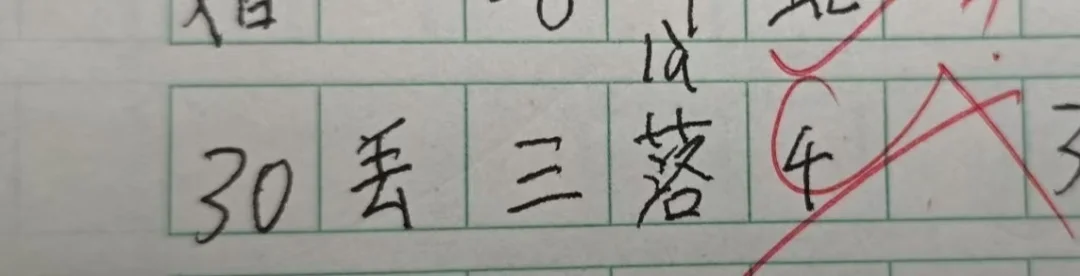 là
30 丢 三 落 4